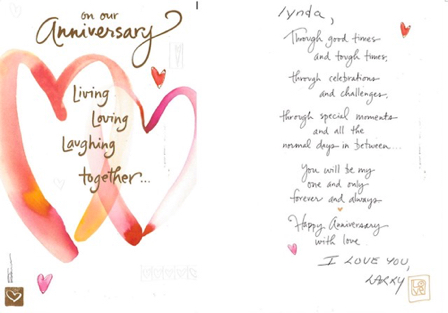 on our
Anniversary
Living
Loving
Laughing
together...
Lynda,
Through good times
and tough times,
through celebrations
and challenges,
through special moments
and all the
normal days in between...
You will be my
one and only
forever and always
Happy Anniversary
with love
I LOVE YOU,
LARRY